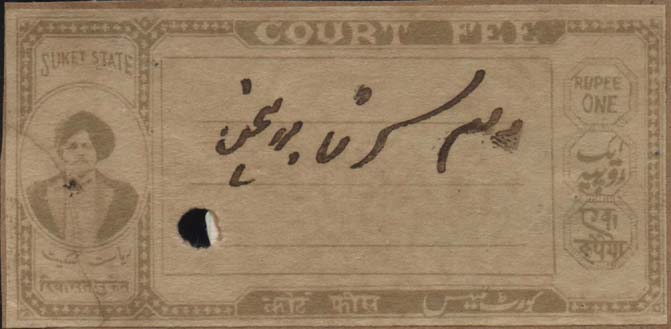 COURT FEE
SUKET STATE
RUPEE
ONE
ایک
روپیہ
एक
रुपया
ریاست سکیت
रियासत सुकेत
कोर्ट फीस
کورٹ فیس